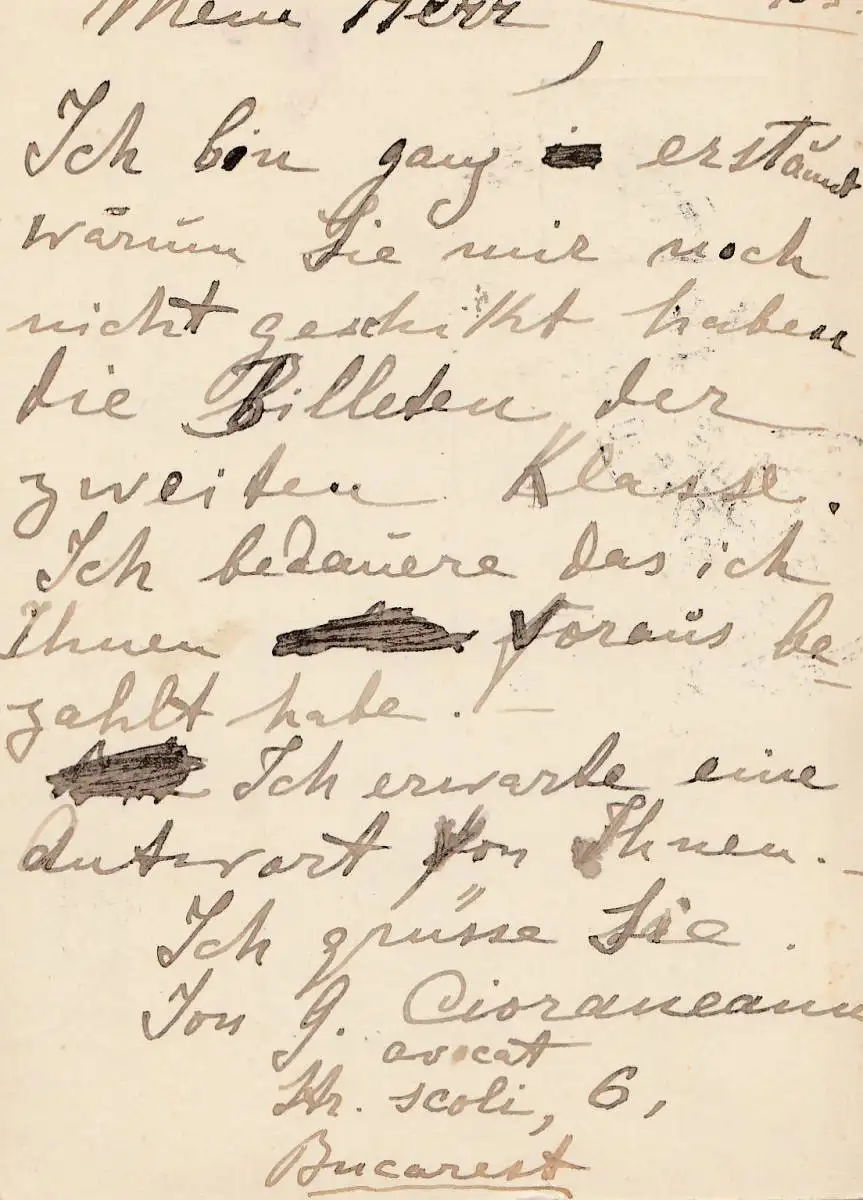 Mein Herr,
Ich bin ganz erstaunt
warum Sie mir noch
nicht geschikt haben
die Billeten der
zweiten Klasse.
Ich bedauere das ich
Ihnen Voraus be-
zahlt habe. -
Ich erwarte eine
Antwort von Ihnen. -
Ich grüsse Sie.
Ion G. Cioraneanu
avocat
Str. scoli, 6,
Bucarest